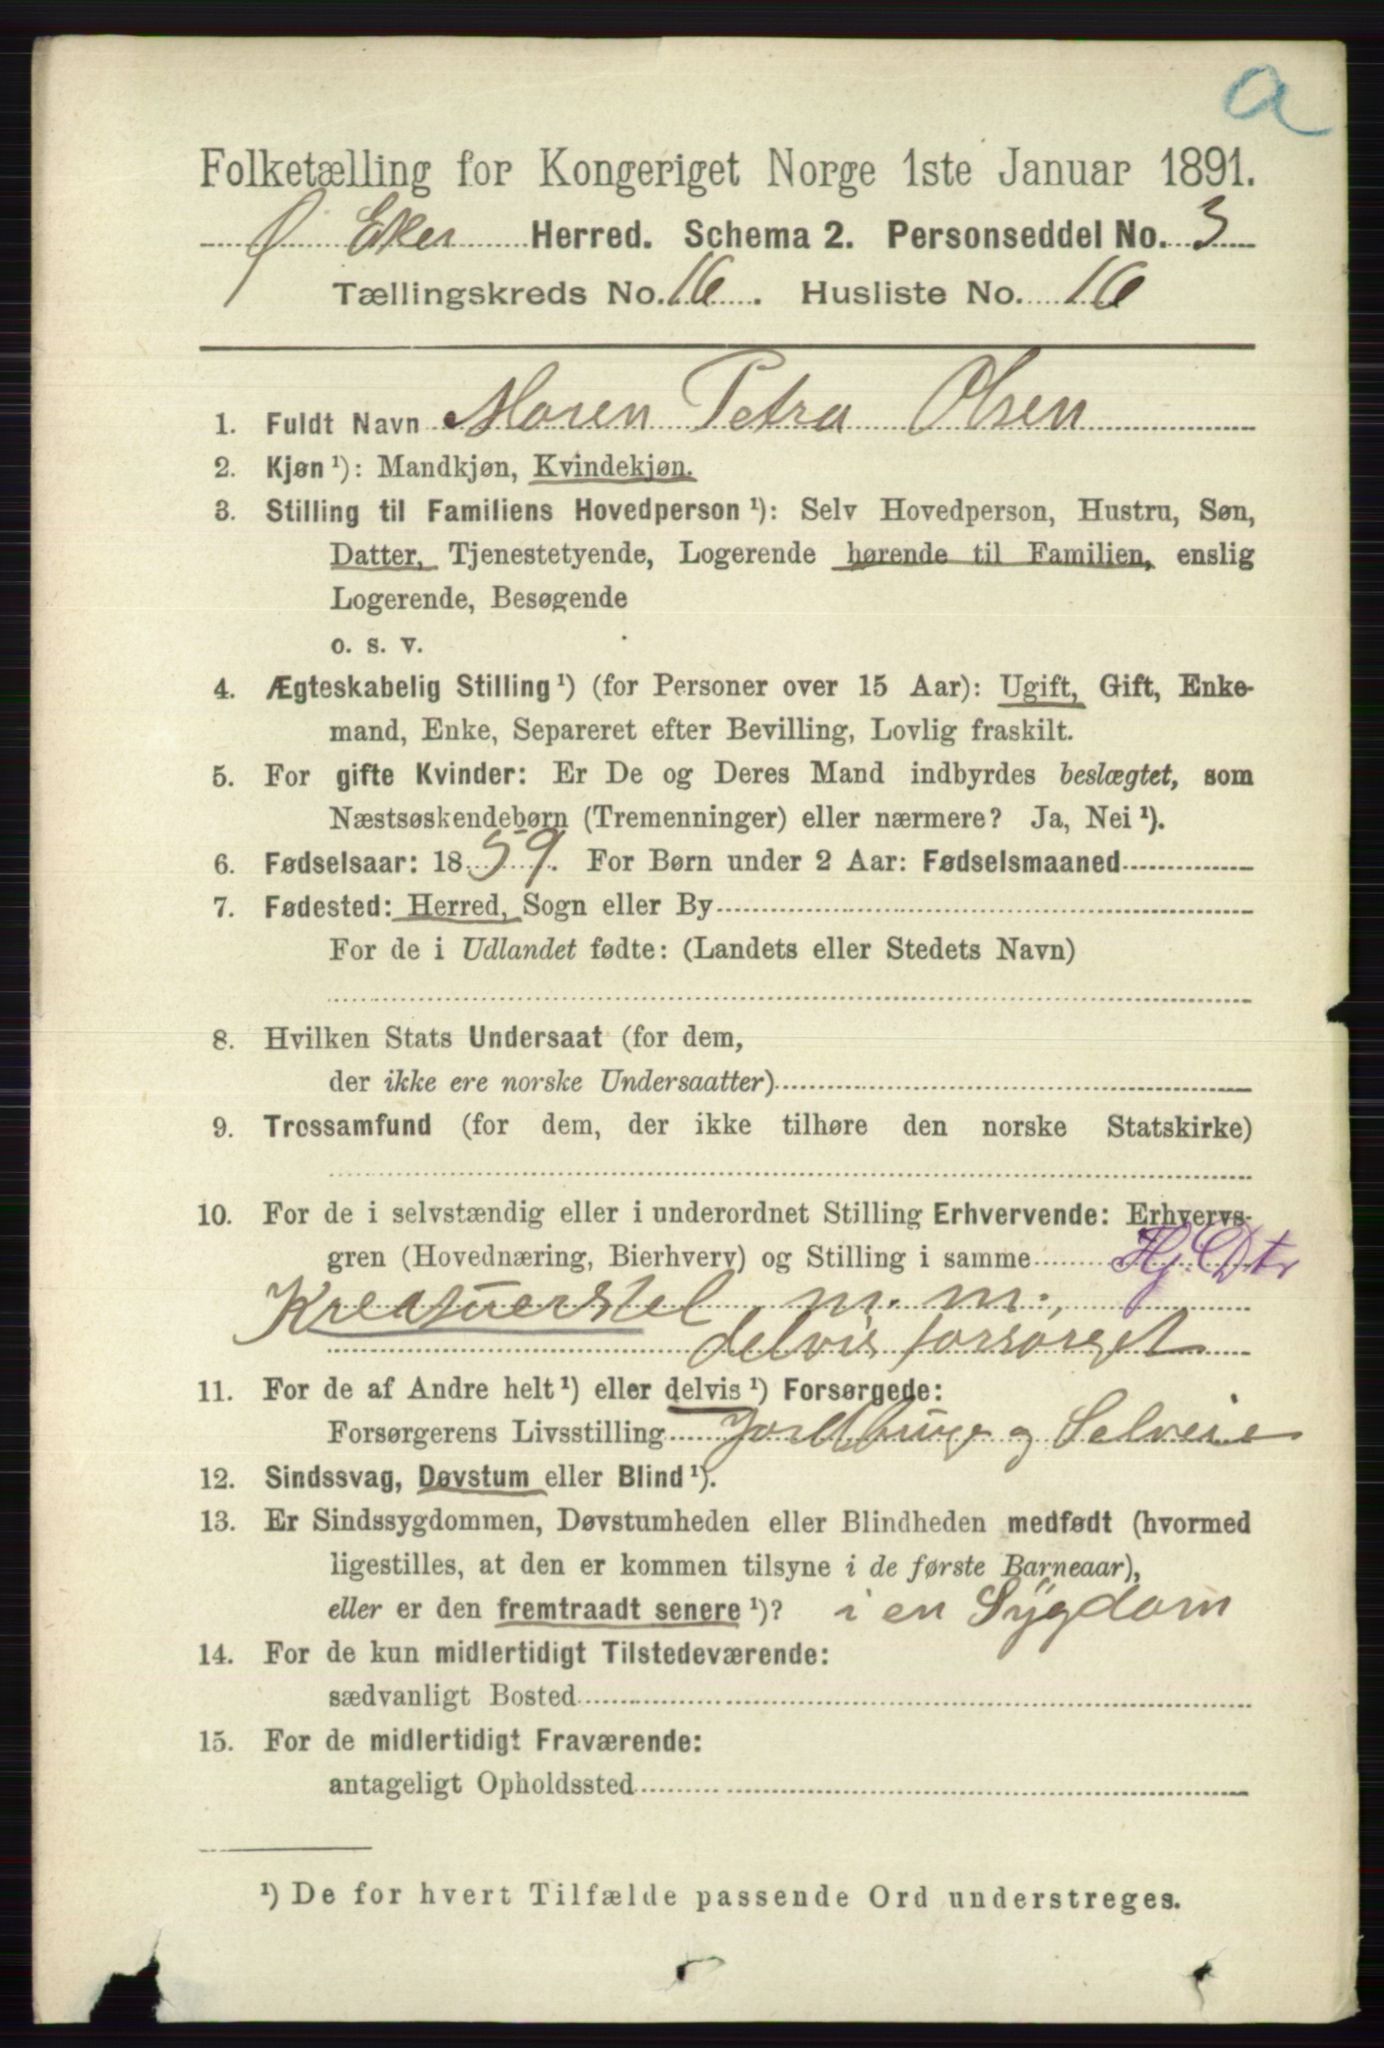 a
Folketælling for Kongeriget Norge 1ste Januar 1891.
Ø Eker Herred. Schema 2. Personseddel No. 3
Tællingskreds No. 16. Husliste No. 16
1. Fuldt Navn Maren Petra Olsen
2. Kjøn ¹): Mandkjøn, Kvindekjøn.
3. Stilling til Familiens Hovedperson ¹): Selv Hovedperson, Hustru, Søn,
Datter, Tjenestetyende, Logerende hørende til Familien, enslig
Logerende, Besøgende
o. s. v.
4. Ægteskabelig Stilling ¹) (for Personer over 15 Aar): Ugift, Gift, Enke-
mand, Enke, Separeret efter Bevilling, Lovlig fraskilt.
5. For gifte Kvinder: Er De og Deres Mand indbyrdes beslægtet, som
Næstsøskendebørn (Tremenninger) eller nærmere? Ja, Nei ¹).
6. Fødselsaar: 1859. For Børn under 2 Aar: Fødselsmaaned
7. Fødested: Herred, Sogn eller By
For de i Udlandet fødte: (Landets eller Stedets Navn)
8. Hvilken Stats Undersaat (for dem,
der ikke ere norske Undersaatter)
9. Trossamfund (for dem, der ikke tilhøre den norske Statskirke)
10. For de i selvstændig eller i underordnet Stilling Erhvervende: Erhvervs-
gren (Hovednæring, Bierhverv) og Stilling i samme Hj. Dtr
Kreaturstel m. m.,
delvis forsørget
11. For de af Andre helt ¹) eller delvis ¹) Forsørgede:
Forsørgerens Livsstilling Jordbruge og Selveie
12. Sindssvag, Døvstum eller Blind ¹).
13. Er Sindssygdommen, Døvstumheden eller Blindheden medfødt (hvormed
ligestilles, at den er kommen tilsyne i de første Barneaar),
eller er den fremtraadt senere ¹)? i en Sygdom
14. For de kun midlertidigt Tilstedeværende:
sædvanligt Bosted
15. For de midlertidigt Fraværende:
antageligt Opholdssted
¹) De for hvert Tilfælde passende Ord understreges.